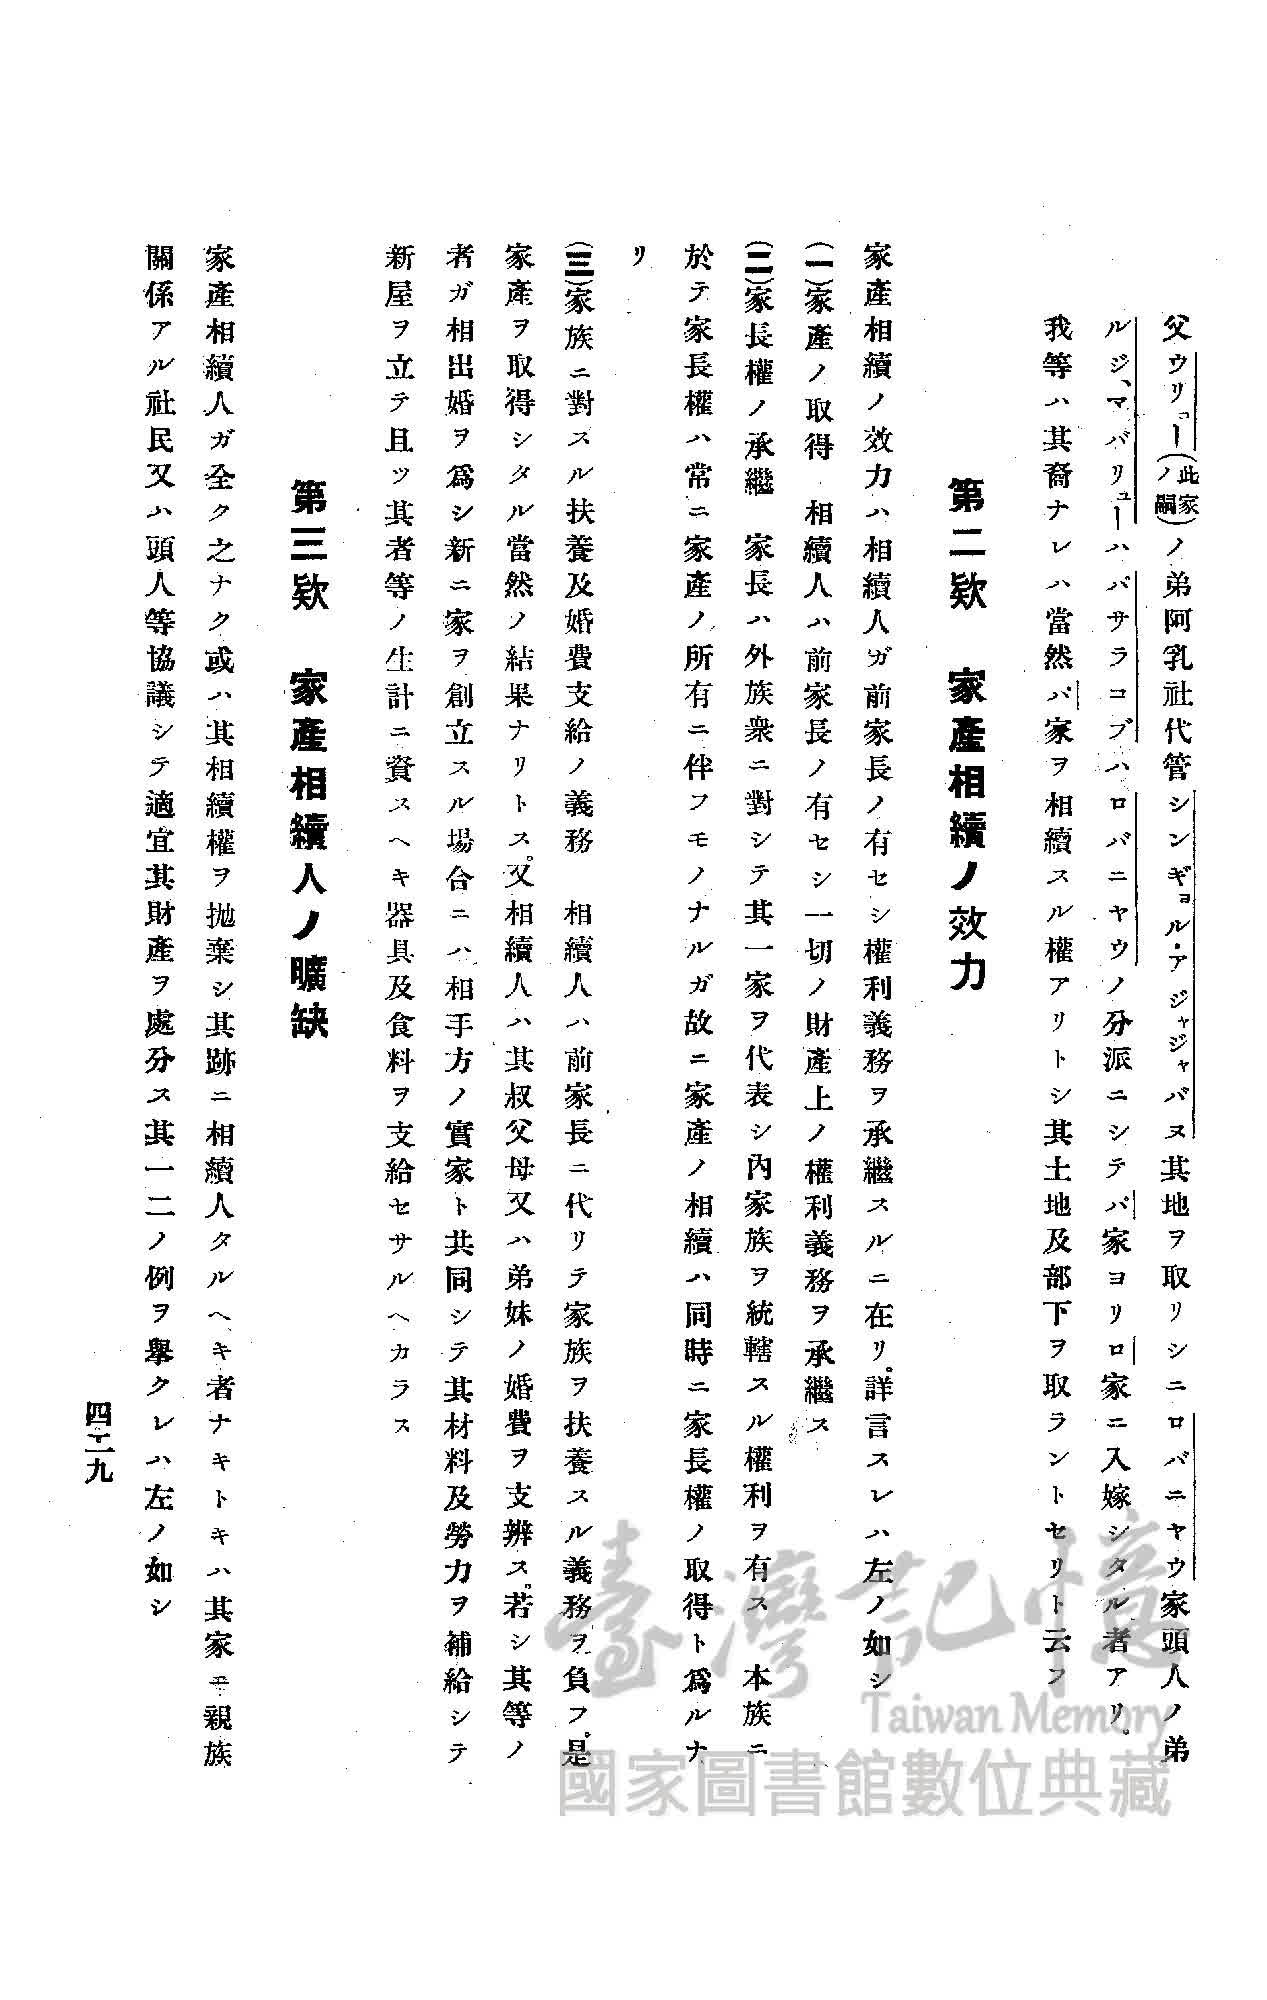 父ウリュー(此家ノ嗣)ノ弟阿乳社代管シンギョル・アジャジャバヌ其地ヲ取リシニロバニヤウ家頭人ノ弟
ルジ、マバリューハバサラコブハロバニヤウノ分派ニシテバ家ヨリロ家ニ入嫁シタル者アリ。
我等ハ其裔ナレハ當然バ家ヲ相續スル權アリトシ其土地及部下ヲ取ラントセリト云フ
第二欵　家產相續ノ效力
家產相續ノ效力ハ相續人ガ前家長ノ有セシ權利義務ヲ承繼スルニ在リ。詳言スレハ左ノ如シ
(一)家產ノ取得　相續人ハ前家長ノ有セシ一切ノ財產上ノ權利義務ヲ承繼ス
(二)家長權ノ承繼　家長ハ外族衆ニ對シテ其一家ヲ代表シ內家族ヲ統轄スル權利ヲ有ス　本族ニ
於テ家長權ハ常ニ家產ノ所有ニ伴フモノナルガ故ニ家產ノ相續ハ同時ニ家長權ノ取得ト爲ルナ
リ
(三)家族ニ對スル扶養及婚費支給ノ義務　相續人ハ前家長ニ代リテ家族ヲ扶養スル義務ヲ負フ。是
家產ヲ取得シタル當然ノ結果ナリトス。又相續人ハ其叔父母又ハ弟妹ノ婚費ヲ支辨ス。若シ其等ノ
者ガ相出婚ヲ爲シ新ニ家ヲ創立スル場合ニハ相手方ノ實家ト共同シテ其材料及勞力ヲ補給シテ
新屋ヲ立テ且ツ其者等ノ生計ニ資スヘキ器具及食料ヲ支給セサルヘカラス
第三欵　家產相續人ノ曠缺
家產相續人ガ全ク之ナク或ハ其相續權ヲ抛棄シ其跡ニ相續人タルヘキ者ナキトキハ其家モ親族
關係アル社民又ハ頭人等協議シテ適宜其財產ヲ處分ス其一二ノ例ヲ舉クレハ左ノ如シ
四二九
臺灣記憶
Taiwan Memory
國家圖書館數位典藏